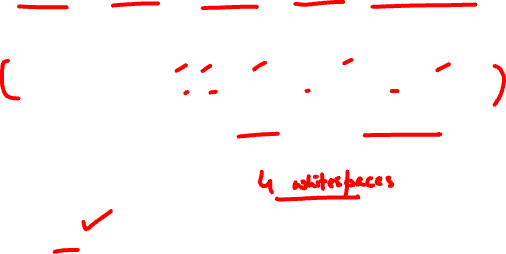 4 whitespaces